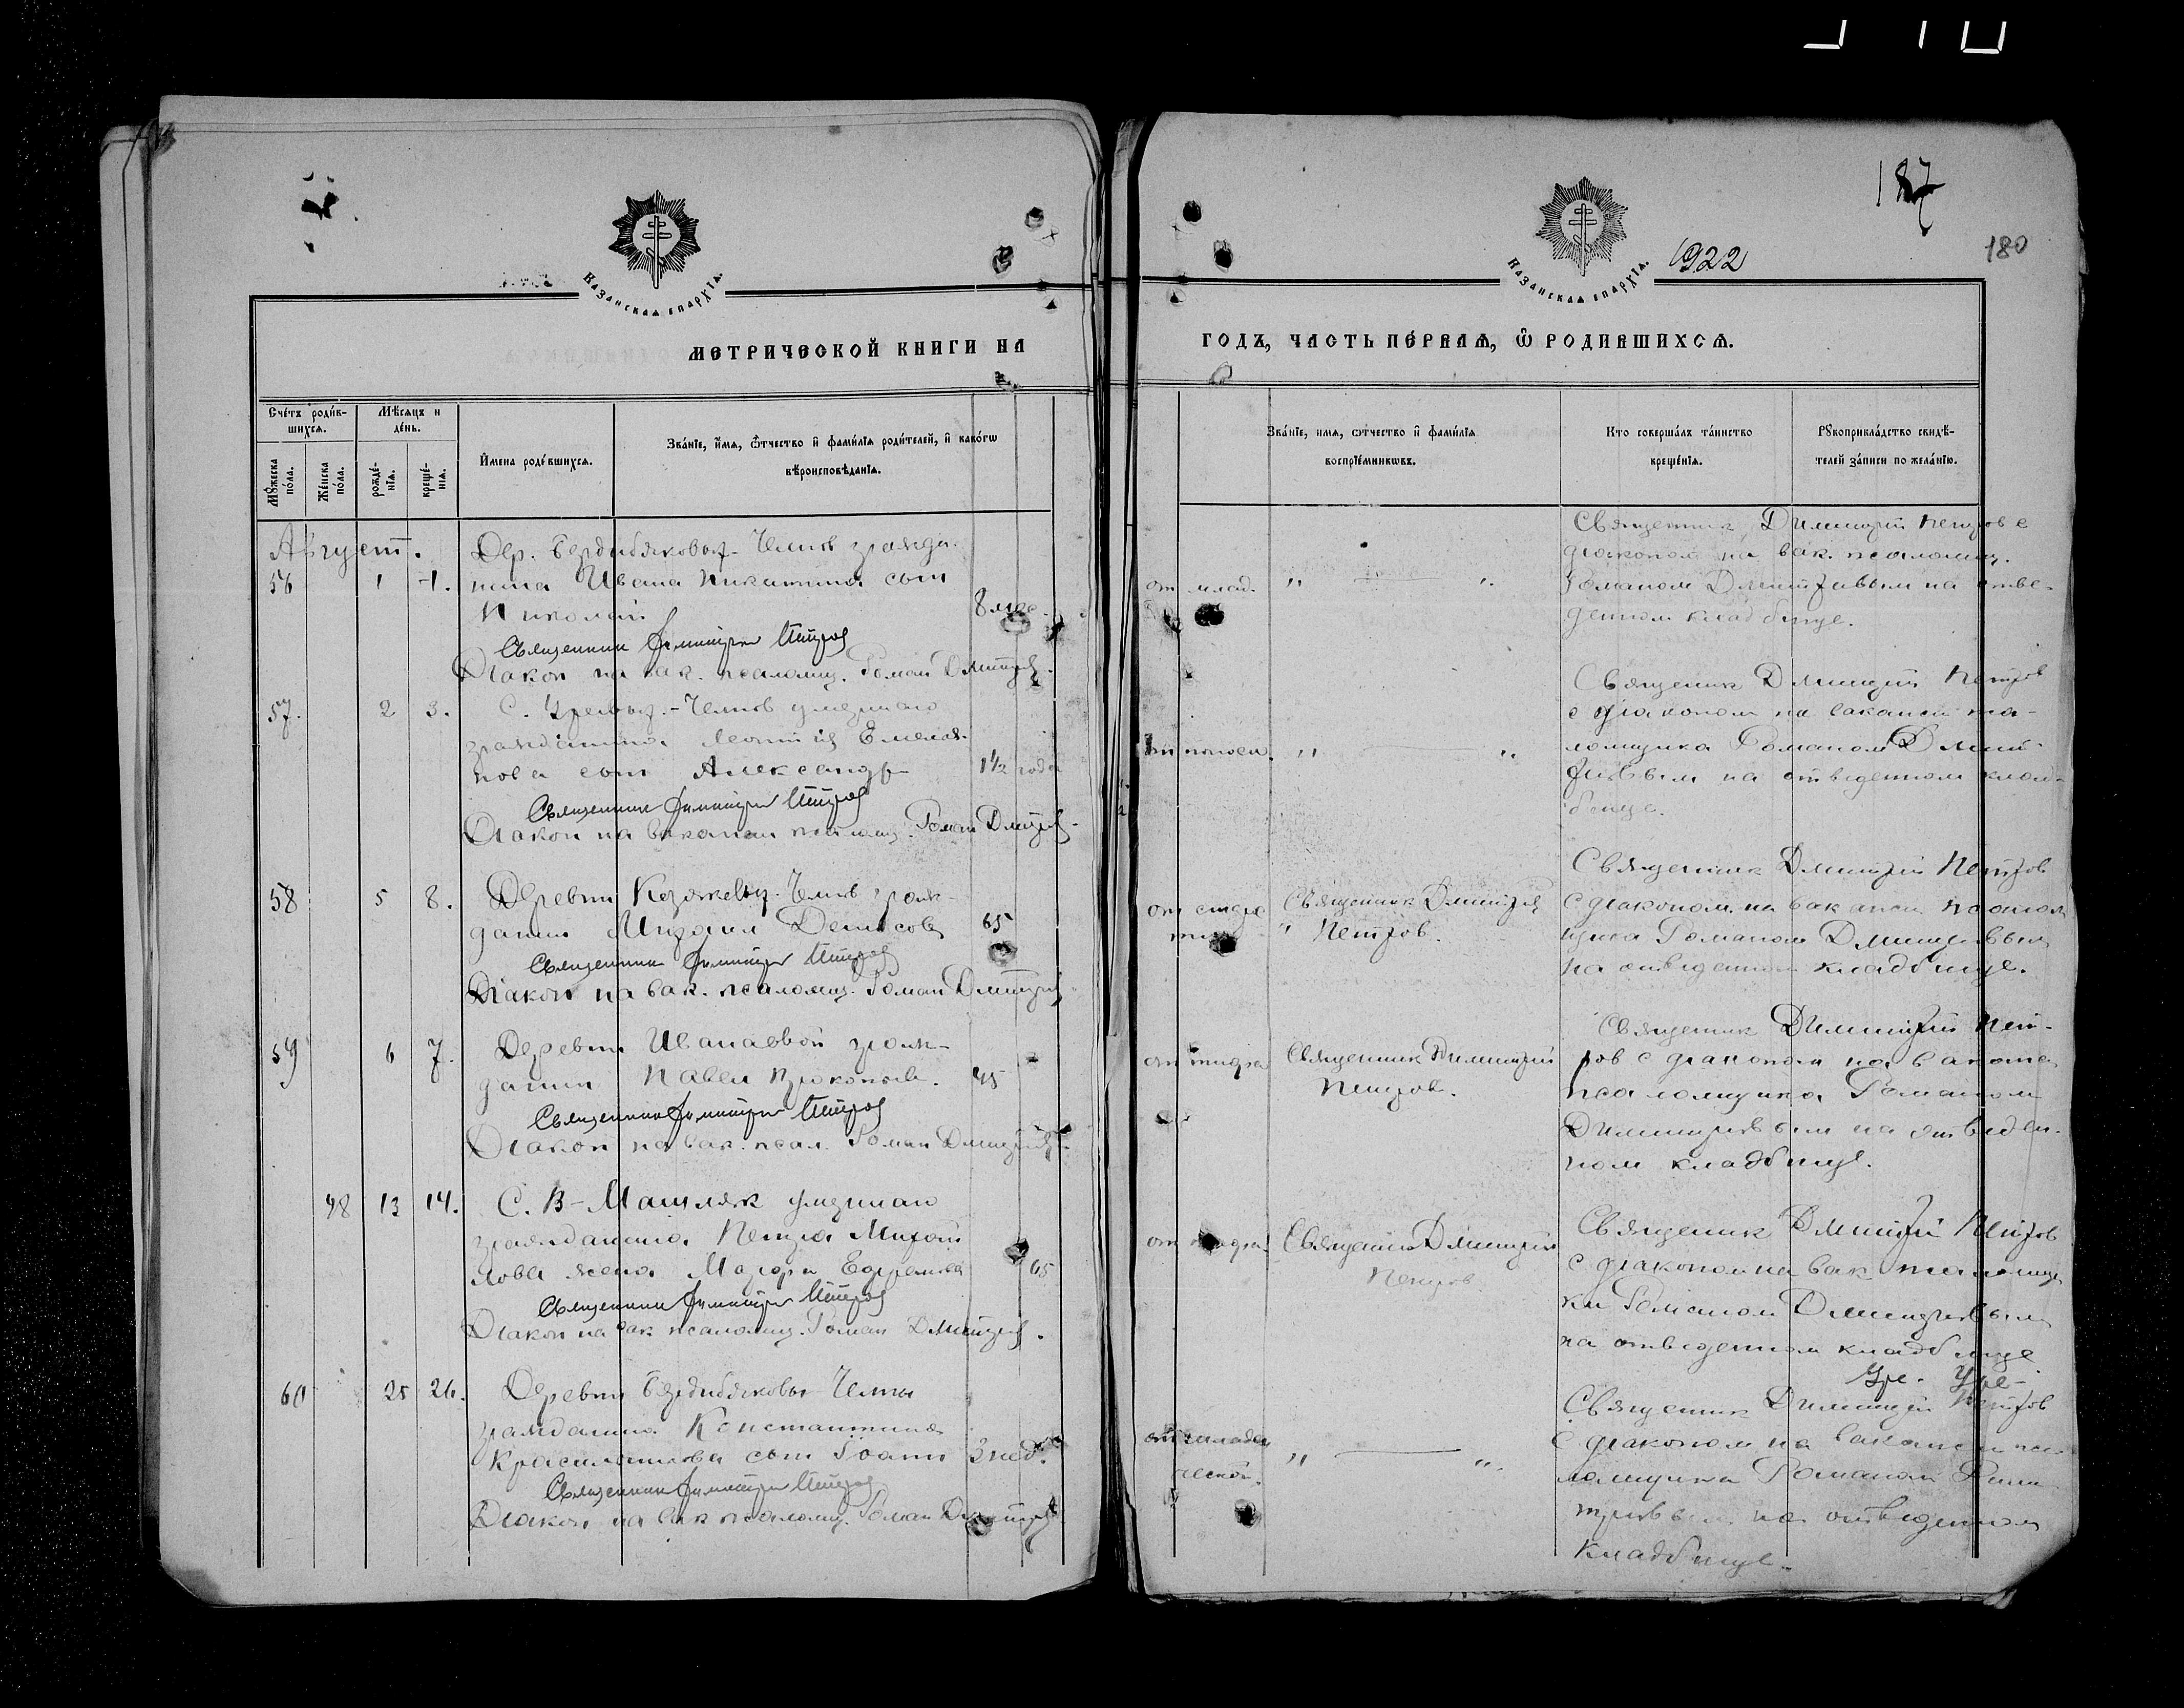 187
180
КАЗАНСКАЯ ЕПАРХІЯ.
КАЗАНСКАЯ ЕПАРХІЯ.
1922
МЕТРИЧЕСКОЙ КНИГИ НА
ГОДЪ, ЧАСТЬ ПЕ́РВАЯ, Ѽ РОДИВШИХСЯ.
Счéтъ роди́вшихся.
Мѣ́сяцъ и де́нь.
Мꙋ́жеска по́ла.
Же́нска по́ла.
рожде́нія.
креще́нія.
И́мена роди́вшихся.
Зва́нїе, и́мя, ѻ́тчество и҆ фами́лїя роди́телей, и҆ како́гѡ
вѣроисповѣ́данїя.
Зва́нїе, имя, ѻ́тчество и҆ фами́лїя
воспрїе́мниковъ.
Кто соверша́лъ та́инство
креще́нїя.
Рꙋкоприкла́дство свидѣ́-
телей за́писи по жела́нїю.
Август.
Дер. Бердибяковых-Челнов гражда-
56 1 -1. нина Ивана Никитина сын
Николай 8 мес.
Священник Димитрий Петров
Диакон на вак. псаломщ. Роман Дмитриев.
от млад. " — "
Священник Димитрий Петров с
диаконом на вак. псаломщ.
Романом Дмитриевым на отве-
денном кладбище.
57. 2 3. С. Челнов умершаго
гражданина Леонтия Емелья-
нова сын Александр 1 1/2 года
Священник Димитрий Петров
Диакон на вакансии псаломщ. Роман Дмитриев
" — "
Священник Дмитрий Петров
с диаконом на вакансии пса-
ломщика Романом Дмит-
риевым на отведенном клад-
бище.
58 5 8. Деревни Челнов граж-
данин Михаил Денисов 65
Священник Димитрий Петров
Диакон на вак. псаломщ. Роман Дмитриев
от старо
сти
Священник Дмитрий
" Петров.
Священник Дмитрий Петров
с диаконом на вакансии псалом
щика Романом Дмитриевым
на отведенном кладбище.
59 6 7. Деревни Иванаевой граж-
данин Павел Прокопьев. 45
Священник Димитрий Петров
Диакон на вак. псал. Роман Дмитриев
от тифа
Священник Димитрий
Петров.
Священник Димитрий Пет-
ров с диаконом на вакансии
псаломщика Романом
Димитриевым на отведен-
ном кладбище.
48 13 14. С. В-Машляк умершаго
гражданина Петра Михай
лова жена Марфа Ефремова 65
Священник Димитрий Петров
Диакон на вак псаломщ. Роман Дмитриев.
от
Священник Дмитрий
Петров
Священник Дмитрий Петров
с диаконом на вак псаломщи
ка Романом Дмитриевым
на отведенном кладбище
60 25 26. Деревни Бердибяковы Челны
гражданина Константина
Красильникова сын Иоанн 3 нед.
Священник Димитрий Петров
Диакон на вак псаломщ. Роман Дмитриев
от младен
ческой.
" — ".
Священник Димитрий Петров
с диаконом на вакансии пса
ломщика Романом Дими
триевым на отведенном
кладбище.